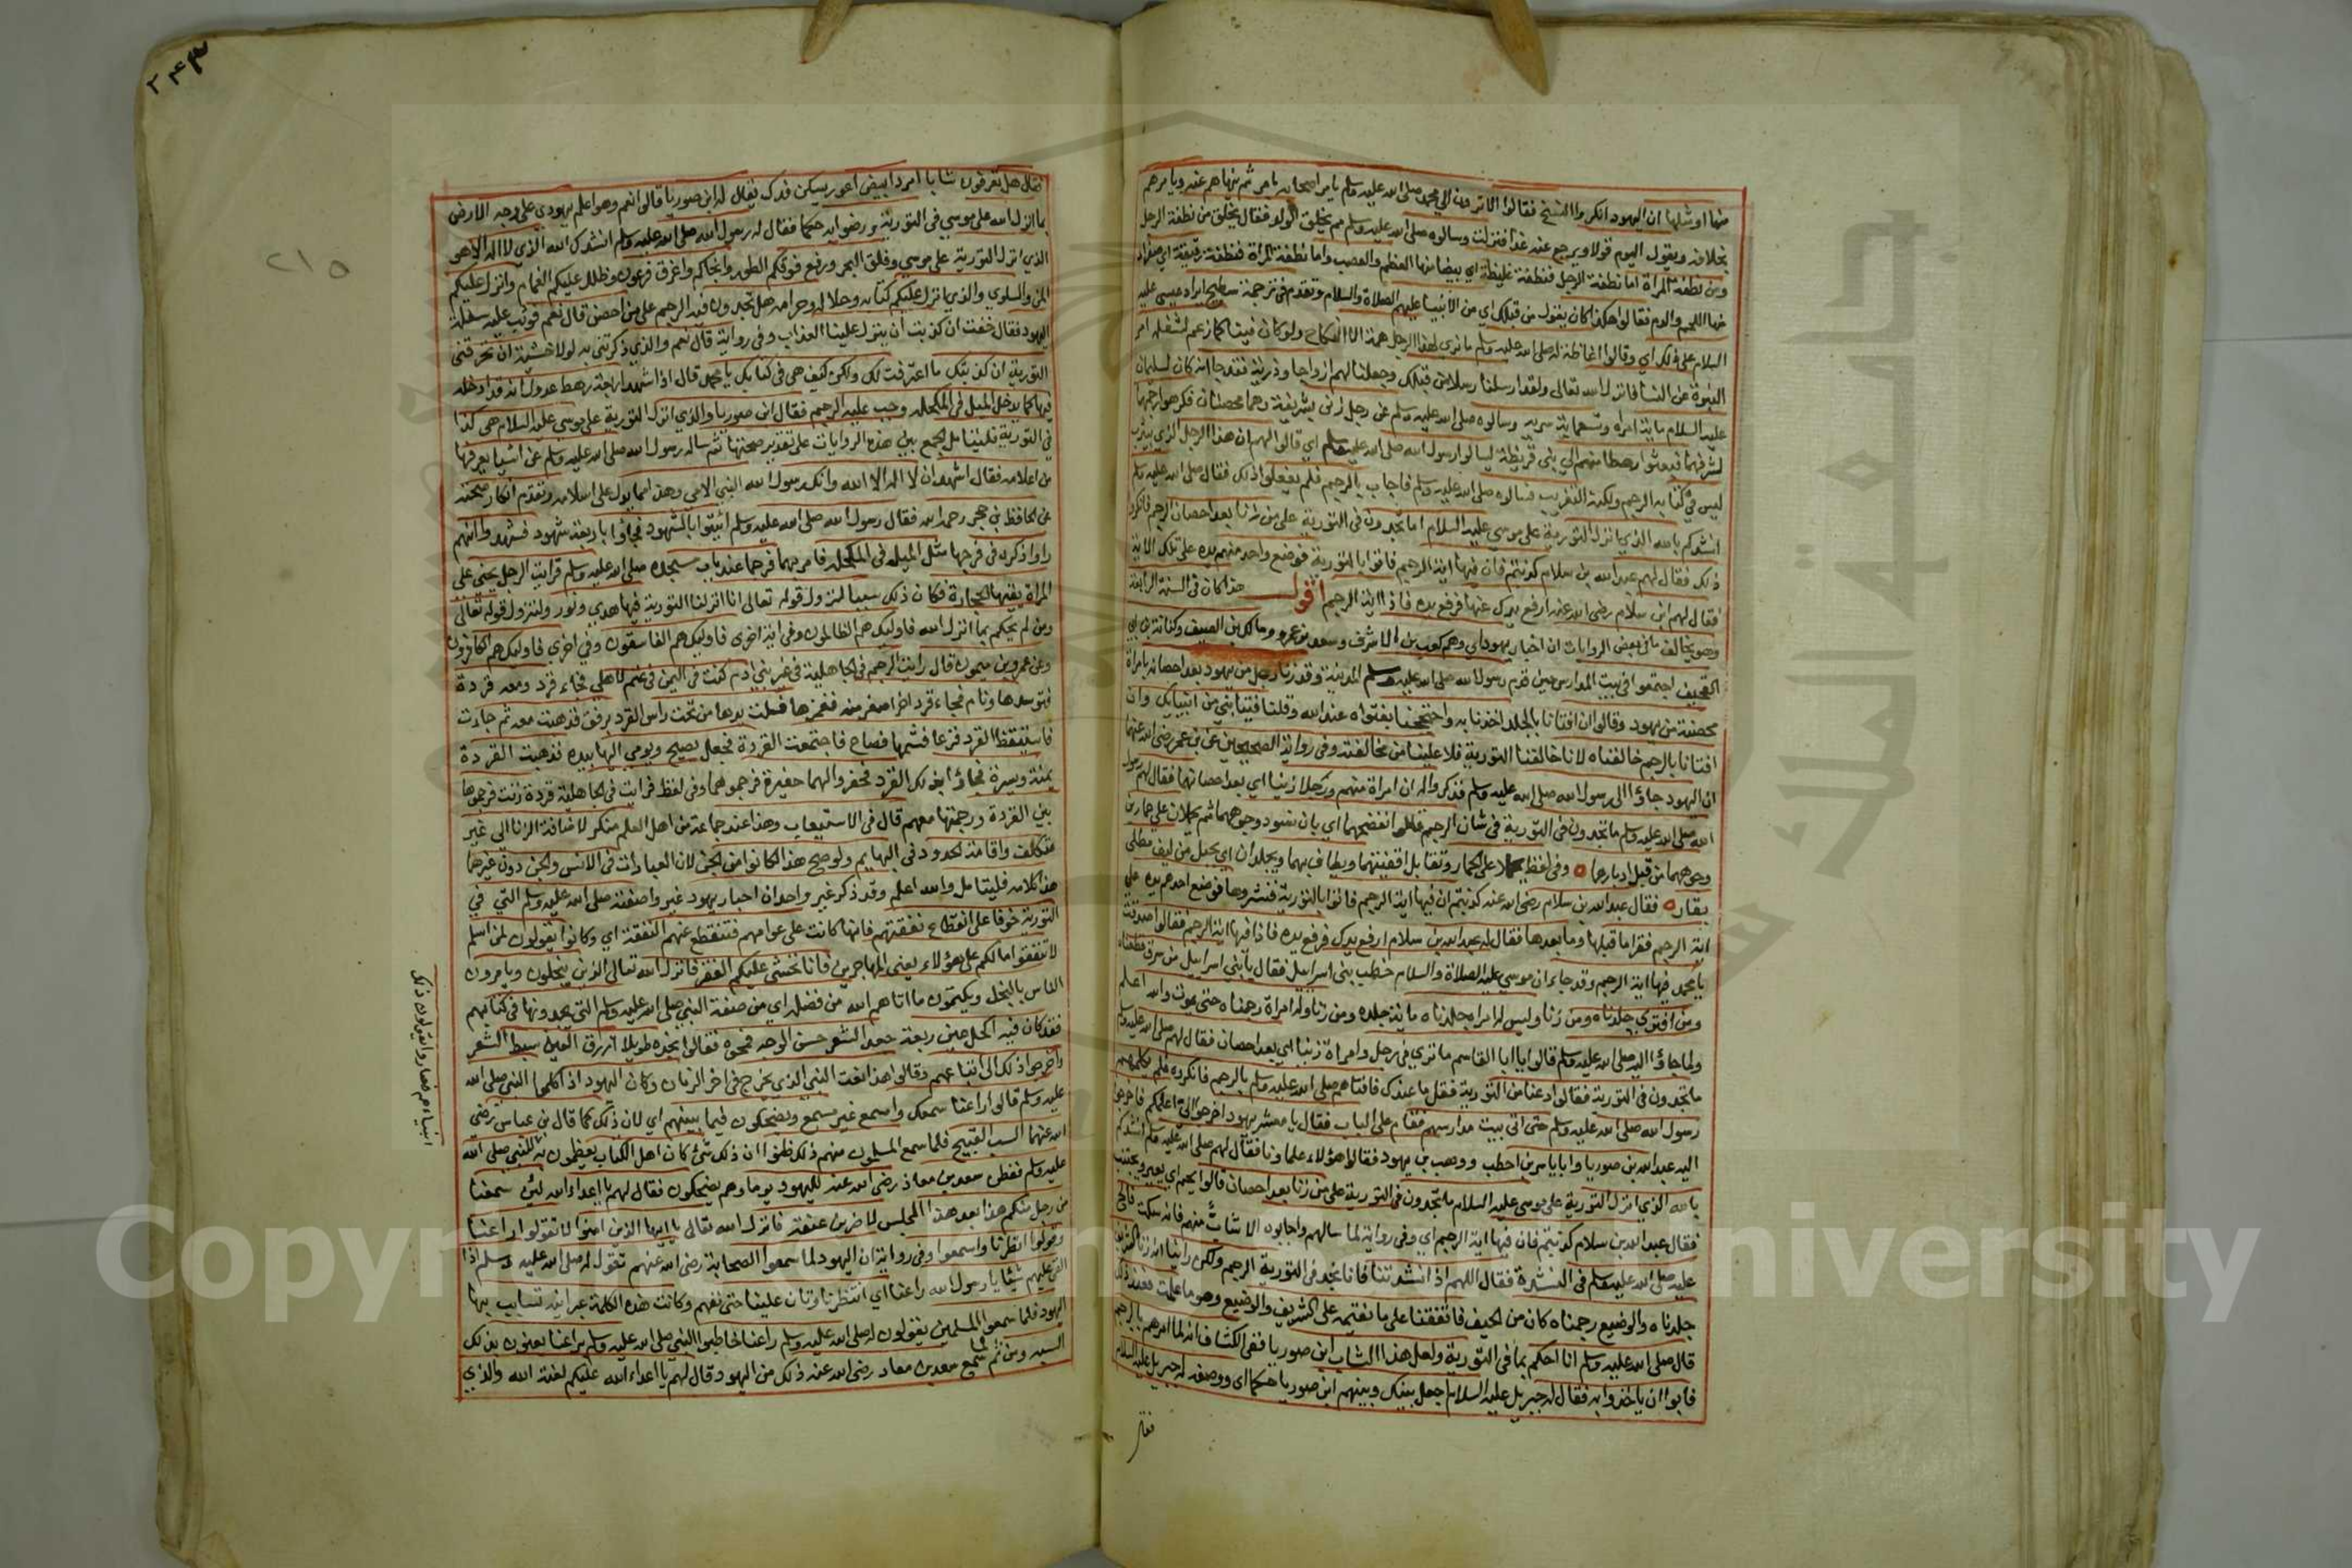 منها او مثلها ان اليهود انكروا النسخ فقالوا الا ترون الى محمد صلى الله عليه وسلم يامر اصحابه بامر ثم ينهاهم عنه ويامرهم
بخلافه ويقول اليوم قولا ويرجع عنه غدا فنزلت وسالوه صلى الله عليه وسلم مم يخلق الولد فقال يخلق من نطفة الرجل
ومن نطفة المراة اما نطفة الرجل فنطفة غليظة اي بيضا منها العظم والعصب واما نطفة المراة فنطفة رقيقة اي صفرا
منها اللحم والدم فقالوا هكذا كان يقول من قبلك اي من الانبيا عليهم الصلاة والسلام وتقدم في ترجمة سطيح ايراد عيسى عليه
السلام على ذلك اي وقالوا اغاظة له صلى الله عليه وسلم ما نرى لهذا الرجل همة الا النكاح ولو كان نبيا كما زعم لشغله امر
النبوة عن النسا فانزل الله تعالى ولقد ارسلنا رسلا من قبلك وجعلنا لهم ازواجا وذرية فقد جا انه كان لسليمان
عليه السلام ماية امراة وتسعماية سرية وسالوه صلى الله عليه وسلم عن رجل زنى بشريفة وهما محصنان فكرهوا رجمهما
لشرفهما فبعثوا رهطا منهم الى بني قريظة ليسالوا رسول الله صلى الله عليه وسلم اي قالوا لهم ان هذا الرجل الذي بيثرب
ليس في كتابه الرجم ولكنه التغريب فسالوه صلى الله عليه وسلم فاجاب بالرجم فلم يفعلوا ذلك فقال صلى الله عليه وسلم
انشدكم بالله الذي انزل التورية على موسى عليه السلام اما تجدون في التورية على من زنا بعد احصان الرجم فانكروا
ذلك فقال لهم عبد الله بن سلام كذبتم فان فيها اية الرجم فاتوا بالتورية فوضع واحد منهم يده على تلك الاية
فقال لهم ابن سلام رضي الله عنه ارفع يدك عنها فرفع يده فاذا اية الرجم اقول هذا كان في السنة الرابعة
وهو يخالف ما في بعض الروايات ان احبار يهود اي وهم كعب بن الاشرف وسعد بن عمرو ومالك بن الصيف وكنانة بن ابي
الحقيق اجتمعوا في بيت المدارس حين قدم رسول الله صلى الله عليه وسلم المدينة وقد زنا رجل من يهود بعد احصانه بامراة
محصنة من يهود وقالوا ان افتانا بالجلد اخذنا به واحتججنا بفتواه عند الله وقلنا فتيا نبي من انبيايك وان
افتانا بالرجم خالفناه لانا خالفنا التورية فلا علينا من مخالفته وفي رواية الصحيحين عن بن عمر رضي الله عنهما
ان اليهود جاؤا الى رسول الله صلى الله عليه وسلم فذكروا له ان امراة منهم ورجلا زنيا اي بعد احصانهما فقال لهم رسول
الله صلى الله عليه وسلم ما تجدون في التورية في شان الرجم قالوا نفضحهما اي بان نسود وجوههما ثم يحملان على حمارين
وجوههما من قبل ادبارهما وفي لفظ يحملا على الحمار وتقابل اقفيتهما ويطاف بهما ويجلدان اي بحبل من ليف مطلى
بقار فقال عبد الله بن سلام رضي الله عنه كذبتم ان فيها اية الرجم فاتوا بالتورية فنشروها فوضع احدهم يده على
اية الرجم فقرا ما قبلها وما بعدها فقال له عبد الله بن سلام ارفع يدك فرفع يده فاذا فيها اية الرجم فقالوا صدقت
يا محمد فيها اية الرجم وقد جاء ان موسى عليه الصلاة والسلام خطب بني اسراييل فقال يا بني اسراييل من سرق قطعناه
ومن افترى جلدناه ومن زنا وليس له امراة جلدناه ماية جلدة ومن زنا وله امراة رجمناه حتى يموت والله اعلم
ولما جاؤا اليه صلى الله عليه وسلم قالوا يا ابا القاسم ما ترى في رجل وامراة زنيا اي بعد احصان فقال لهم صلى الله عليه وسلم
ما تجدون في التورية فقالوا دعنا من التورية فقل ما عندك فافتاهم صلى الله عليه وسلم بالرجم فانكروه فلم يكلمهم
رسول الله صلى الله عليه وسلم حتى اتى بيت مدارسهم فقام على الباب فقال يا معشر يهود اخرجوا الي اعلمكم فاخرجوا
اليه عبد الله بن صوريا وابا ياسر بن احطب ووهب بن يهود فقالوا هؤلاء علماؤنا فقال لهم صلى الله عليه وسلم انشدكم
بالله الذي انزل التورية على موسى عليه السلام ما تجدون في التورية على من زنا بعد احصان قالوا يحمم اي يعير ويجتنب
فقال عبد الله بن سلام كذبتم فان فيها اية الرجم اي وفي رواية لما سالهم واجابوه الا شاب منهم فانه سكت فالح
عليه صلى الله عليه وسلم في النشدة فقال اللهم اذ انشدتنا فانا نجد في التورية الرجم ولكن راينا انه زنا الشريف
جلدناه والوضيع رجمناه كان من الحيف فاتفقنا على ما نقيمه على الشريف والوضيع وهو ما علمت فعند ذلك
قال صلى الله عليه وسلم انا احكم بما في التورية ولعل هذا الشاب ابن صوريا ففي الكشاف انه لما امرهم بالرجم
فابوا ان ياخذوا به فقال له جبريل عليه السلام اجعل بينك وبينهم ابن صوريا حكما اي ووصفه له جبريل عليه السلام
فقال
٢٤٣
٢١٥
فقال هل تعرفون شابا امرد ابيض اعور يسكن فدك يقال له ابن صوريا قالوا نعم وهو اعلم يهودي على وجه الارض
بما انزل الله على موسى في التورية ورضوا به حكما فقال له رسول الله صلى الله عليه وسلم انشدك الله الذي لا اله الا هو
الذي انزل التورية على موسى وفلق البحر ورفع فوقكم الطور وانجاكم واغرق فرعون وظلل عليكم الغمام وانزل عليكم
المن والسلوى والذي انزل عليكم كتابه وحلاله وحرامه هل تجدون فيه الرجم على من احصن قال نعم فوثب عليه سفلة
اليهود فقال خفت ان كذبت ان ينزل علينا العذاب وفي رواية قال نعم والذي ذكرتني به لولا خشية ان تحرقني
التورية ان كذبتك ما اعترفت لك ولكن كيف هي في كتابك يا محمد قال اذا شهد اربعة رهط عدول انه قد ادخله
فيها كما يدخل الميل في المكحلة وجب عليه الرجم فقال ابن صوريا والذي انزل التورية على موسى عليه السلام هي كذا
في التورية فليتامل الجمع بين هذه الروايات على تقدير صحتها ثم ساله رسول الله صلى الله عليه وسلم عن اشيا يعرفها
من اعلامه فقال اشهد ان لا اله الا الله وانك رسول الله النبي الامي وهذا مما يدل على اسلامه وتقدم انكار صحته
عن الحافظ بن حجر رحمه الله فقال رسول الله صلى الله عليه وسلم ايتوا بالشهود فجاؤا باربعة شهود فشهدوا انهم
راوا ذكره في فرجها مثل الميل في المكحلة فامر بهما فرجما عند باب مسجده صلى الله عليه وسلم فرايت الرجل يحني على
المراة يقيها الحجارة فكان ذلك سببا لنزول قوله تعالى انا انزلنا التورية فيها هدى ونور ولنزول قوله تعالى
ومن لم يحكم بما انزل الله فاوليك هم الظالمون وفي اية اخرى فاوليك هم الفاسقون وفي اخرى فاوليك هم الكافرون
وعن عمرو بن ميمون قال رايت الرجم في الجاهلية في غير بني ادم كنت في اليمن في غنم لاهلي فجاء قرد ومعه قردة
فتوسدها ونام فجاء قرد اخر اصغر منه فغمزها فسلت يدها من تحت راس القرد برفق فذهبت معه ثم جاءت
فاستيقظ القرد فزعا فشمها فصاح فاجتمعت القردة فجعل يصيح ويومي اليها بيده فذهبت القردة
يمنة ويسرة فجاؤا بذلك القرد فحفروا لهما حفيرة فرجموهما وفي لفظ فرايت في الجاهلية قردة زنت فرجموها
بين القردة ورجمتها معهم قال في الاستيعاب وهذا عند جماعة من اهل العلم منكر لاضافة الزنا الى غير
متكلف واقامة الحدود في البهايم ولو صح هذا لكانوا من الجن لان العبادات في الانس والجن دون غيرهما
هذا كلامه فليتامل والله اعلم وقد ذكر غير واحد ان احبار يهود غيروا صفته صلى الله عليه وسلم التي في
التورية خوفا على انقطاع نفقتهم فانها كانت على عوامهم فتنقطع عنهم النفقة اي وكانوا يقولون لمن اسلم
لا تنفقوا مالكم على هؤلاء يعني المهاجرين فانا نخشى عليكم الفقر فانزل الله تعالى الذين يبخلون ويامرون
الناس بالبخل ويكتمون ما اتاهم الله من فضله اي من صفة النبي صلى الله عليه وسلم التي يجدونها في كتابهم
فقد كان فيه اكحل عين ربعة جعد الشعر حسن الوجه فمحوه فقالوا نجده طويلا ازرق العين سبط الشعر
واخرجوا ذلك الى اتباعهم وقالوا هذا نعت النبي الذي يخرج في اخر الزمان وكان اليهود اذا كلموا النبي صلى الله
عليه وسلم قالوا راعنا سمعك واسمع غير مسمع ويضحكون فيما بينهم اي لان ذلك كما قال بن عباس رضي
الله عنهما السب القبيح فلما سمع المسلمون منهم ذلك ظنوا ان ذلك شئ كان اهل الكتاب يعظمون به النبي صلى الله
عليه وسلم ففطن سعد بن معاذ رضي الله عنه لليهود يوما وهم يضحكون فقال لهم يا اعداء الله لئن سمعنا
من رجل منكم هذا بعد هذا المجلس لاضربن عنقه فانزل الله تعالى يا ايها الذين امنوا لا تقولوا راعنا
وقولوا انظرنا واسمعوا وفي رواية ان اليهود لما سمعوا الصحابة رضي الله عنهم تقول له صلى الله عليه وسلم اذا
القى عليهم شيئا يا رسول الله راعنا اي انتظرنا وتان علينا حتى نفهم وكانت هذه الكلمة عبرانية تتسابب بها
اليهود فلما سمعوا المسلمين يقولون له صلى الله عليه وسلم راعنا خاطبوا النبي صلى الله عليه وسلم براعنا يعنون بذلك
السب ومن ثم لما سمع سعد بن معاذ رضي الله عنه ذلك من اليهود قال لهم يا اعداء الله عليكم لعنة الله والذي
انبياءهم فصاروا يقولون ذلك
جامعة الملك سعود
Copyright © King Saud University